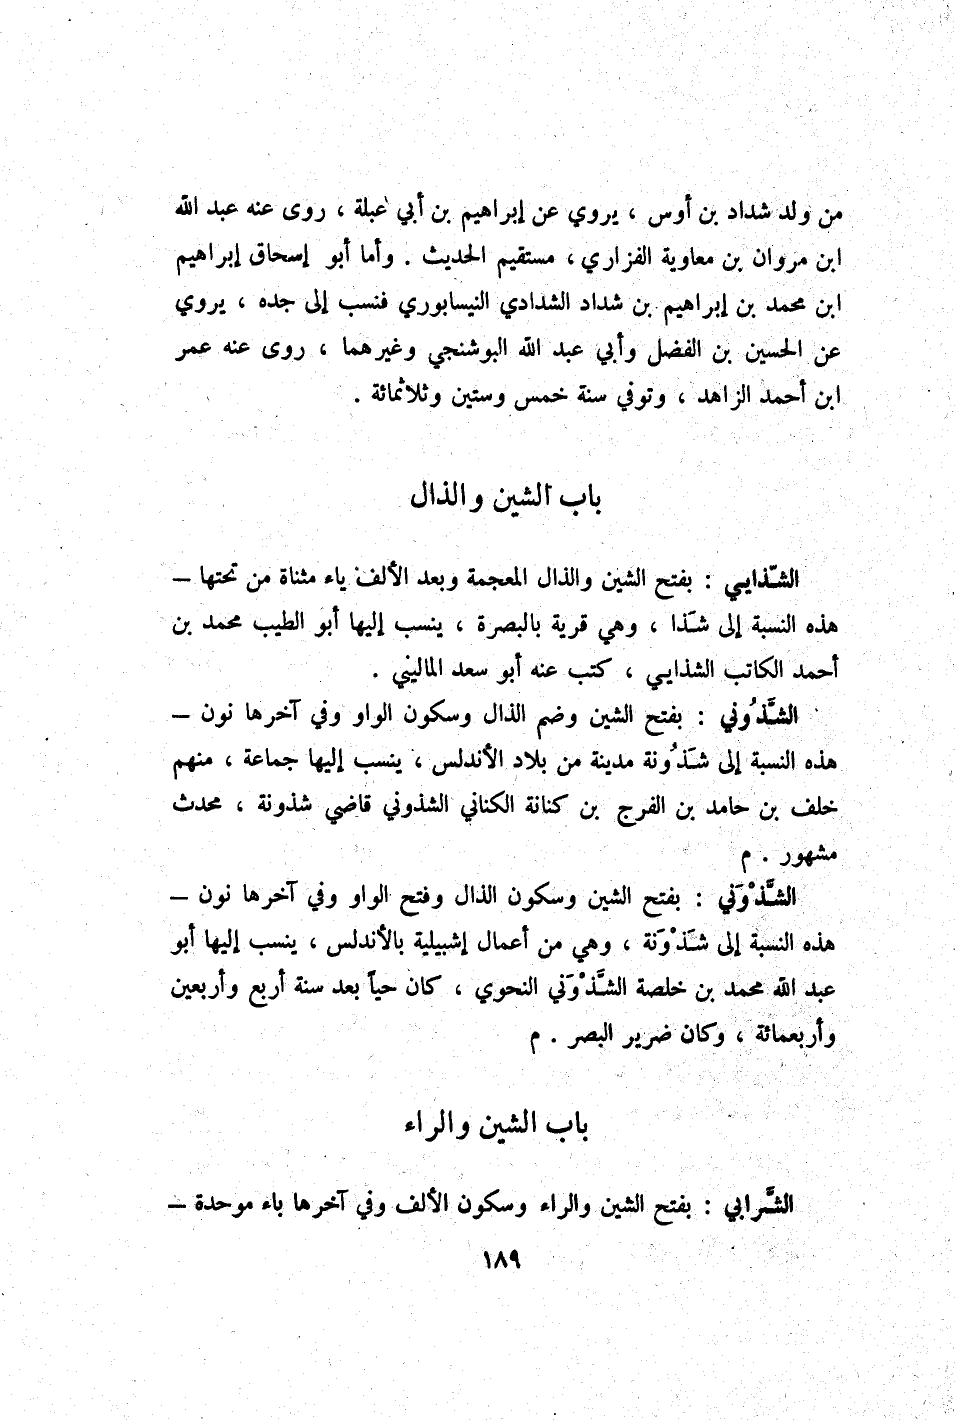 من ولد شداد بن أوس ، يروي عن إبراهيم بن أبي عبلة ، روى عنه عبد الله
ابن مروان بن معاوية الفزاري ، مستقيم الحديث . وأما أبو إسحاق إبراهيم
ابن محمد بن إبراهيم بن شداد الشدادي النيسابوري فنسب إلى جده ، يروي
عن الحسين بن الفضل وأبي عبد الله البوشنجي وغيرهما ، روى عنه عمر
ابن أحمد الزاهد ، وتوفي سنة خمس وستين وثلاثمائة .
باب الشين والذال
الشّذايي : بفتح الشين والذال المعجمة وبعد الألف ياء مثناة من تحتها –
هذه النسبة إلى شَذا ، وهي قرية بالبصرة ، ينسب إليها أبو الطيب محمد بن
أحمد الكاتب الشذايي ، كتب عنه أبو سعد الماليني .
الشَّذُوني : بفتح الشين وضم الذال وسكون الواو وفي آخرها نون –
هذه النسبة إلى شَذُونة مدينة من بلاد الأندلس ، ينسب إليها جماعة ، منهم
خلف بن حامد بن الفرج بن كنانة الكناني الشذوني قاضي شذونة ، محدث
مشهور . م
الشَّذْوَني : بفتح الشين وسكون الذال وفتح الواو وفي آخرها نون –
هذه النسبة إلى شَذْوَنة ، وهي من أعمال إشبيلية بالأندلس ، ينسب إليها أبو
عبد الله محمد بن خلصة الشَّذْوَني النحوي ، كان حياً بعد سنة أربع وأربعين
وأربعمائة ، وكان ضرير البصر . م
باب الشين والراء
الشَّرابي : بفتح الشين والراء وسكون الألف وفي آخرها باء موحدة –
١٨٩